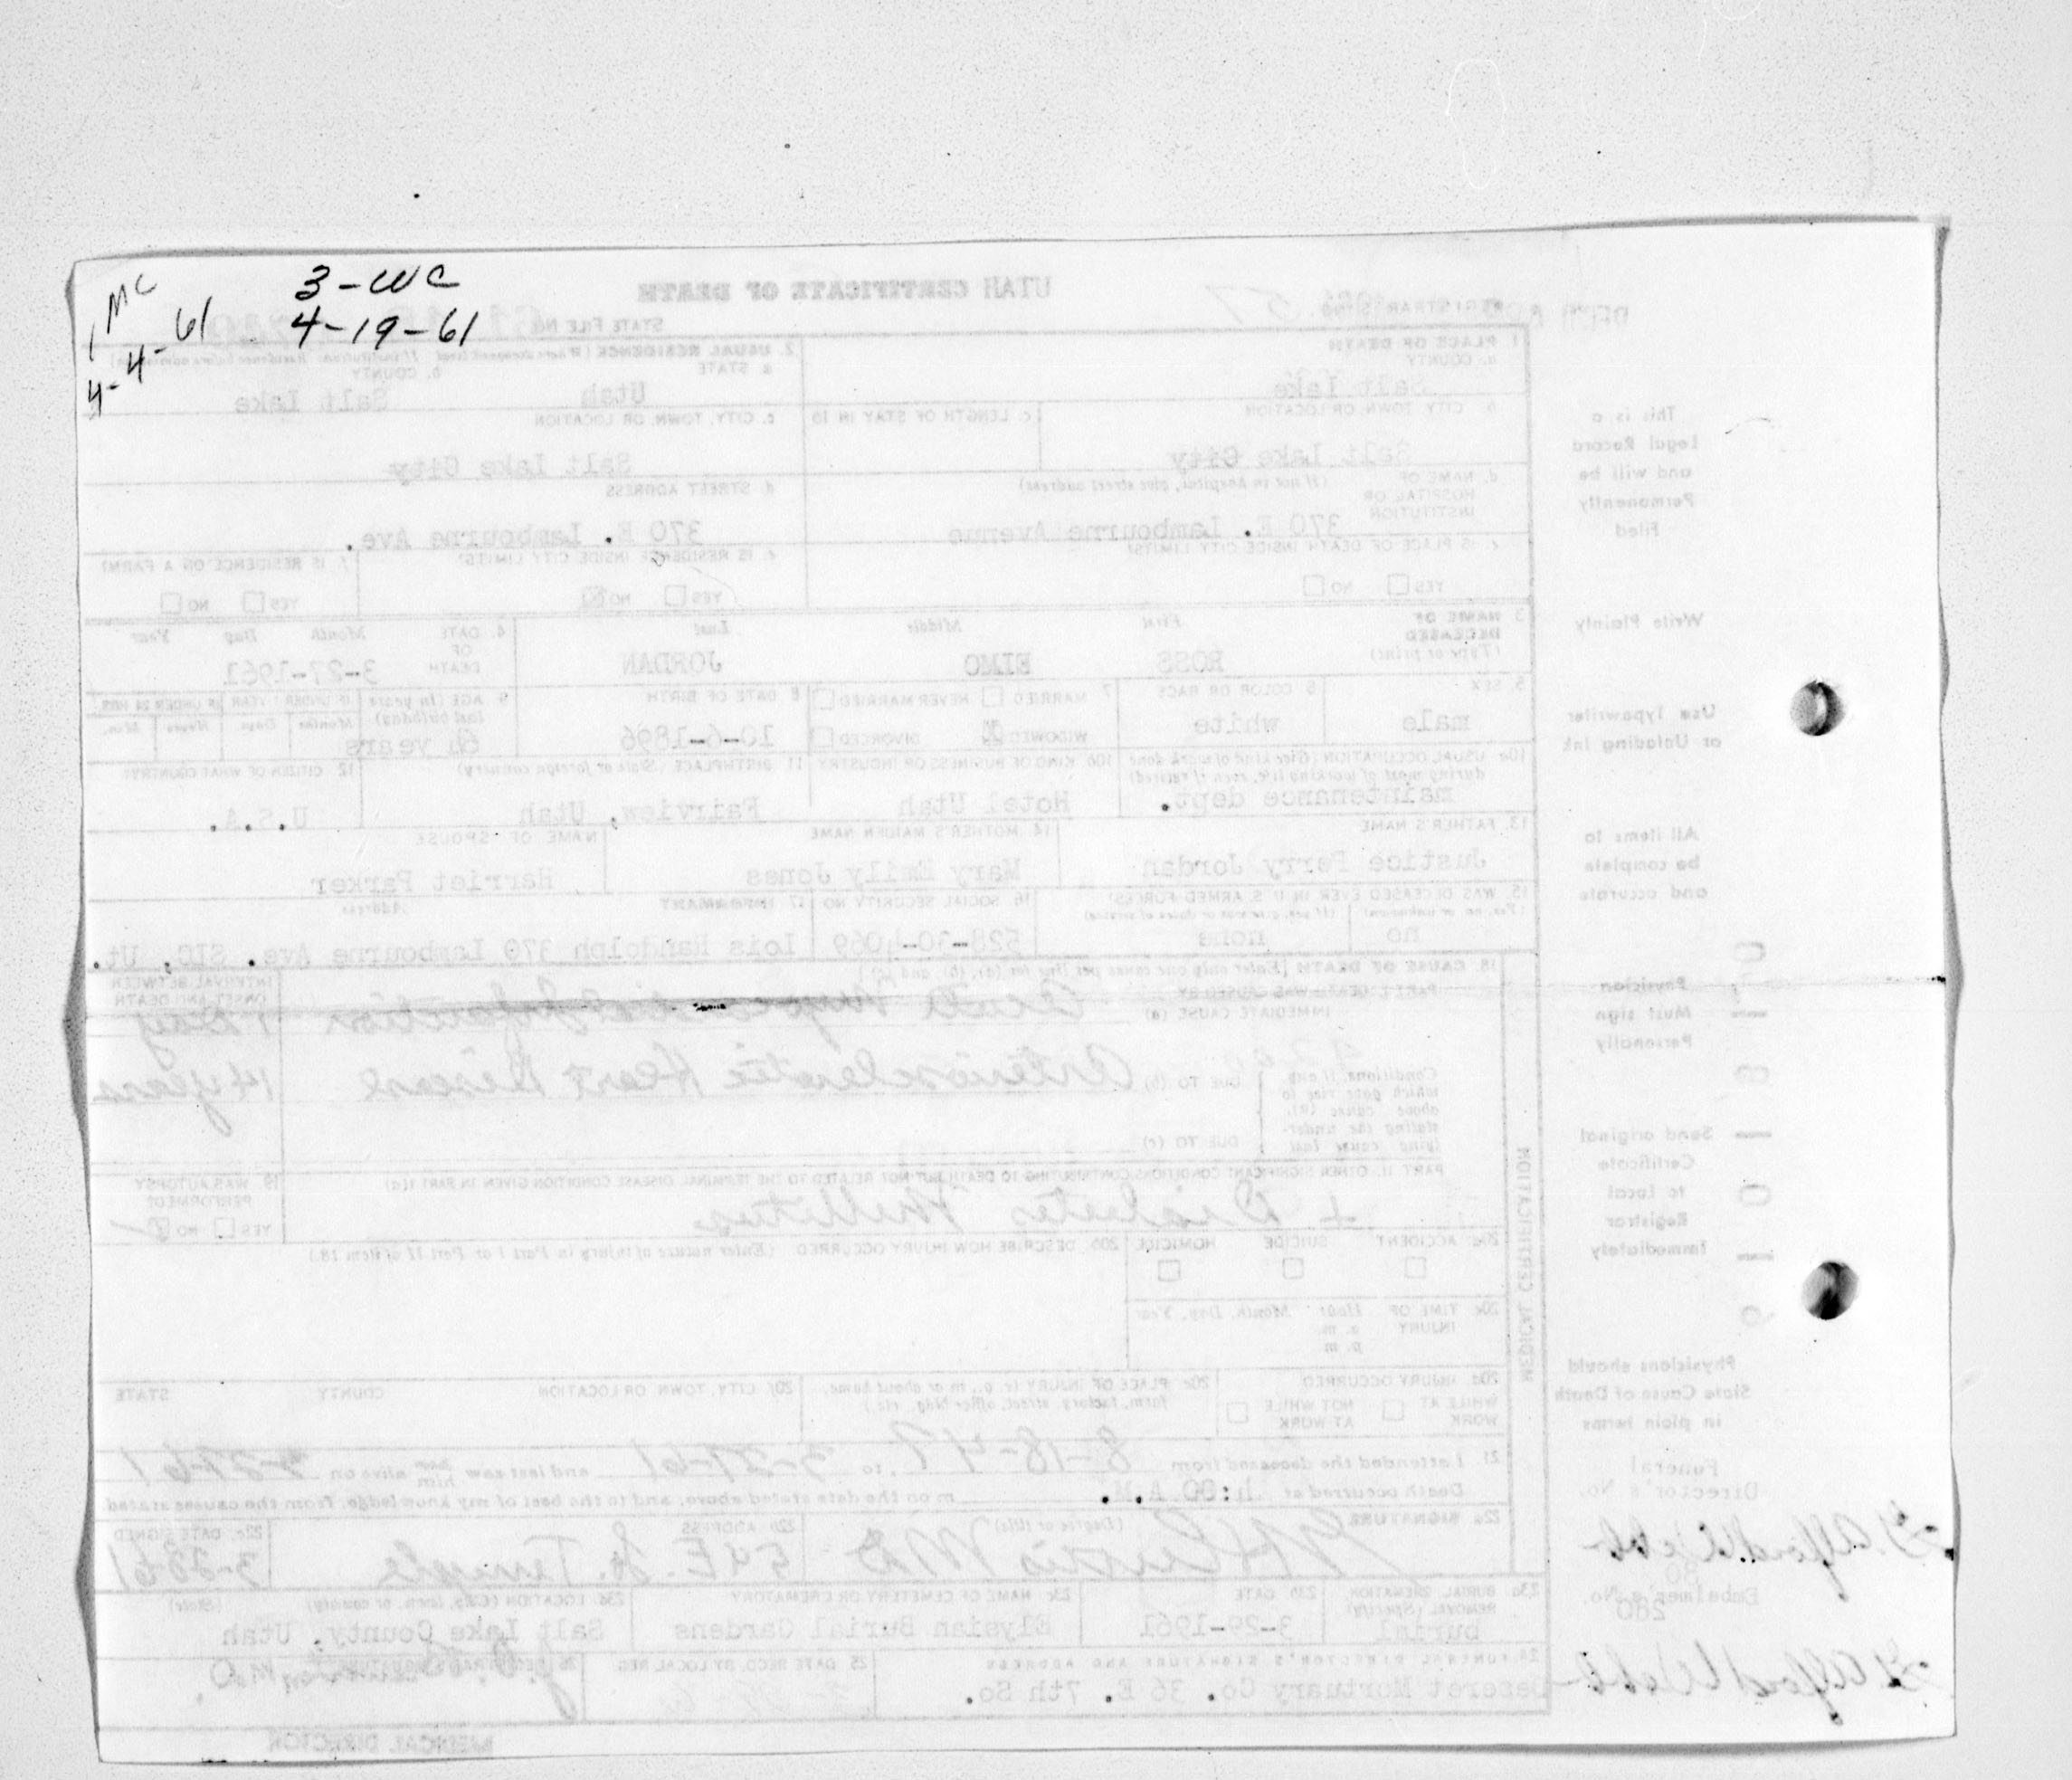 1 MC
4-4-61
3-WC
4-19-61
UTAH CERTIFICATE OF DEATH
STATE FILE NO.
1. PLACE OF DEATH
a. COUNTY
Salt Lake
2. USUAL RESIDENCE (Where deceased lived. If institution: Residence before admission)
a. STATE b. COUNTY
Utah Salt Lake
b. CITY, TOWN, OR LOCATION c. LENGTH OF STAY IN 1b
Salt Lake City
c. CITY, TOWN, OR LOCATION
Salt Lake City
d. NAME OF HOSPITAL OR INSTITUTION (If not in hospital, give street address)
370 E. Lambourne Avenue
d. STREET ADDRESS
370 E. Lambourne Ave.
e. IS PLACE OF DEATH INSIDE CITY LIMITS?
YES NO
e. IS RESIDENCE INSIDE CITY LIMITS?
YES NO
f. IS RESIDENCE ON A FARM?
YES NO
3. NAME OF DECEASED (Type or print)
First Middle Last
ROSS ELMO JORDAN
4. DATE OF DEATH Month Day Year
3-27-1961
5. SEX
male
6. COLOR OR RACE
white
7. MARRIED NEVER MARRIED
WIDOWED DIVORCED
8. DATE OF BIRTH
10-6-1896
9. AGE (In years last birthday)
64 years
IF UNDER 1 YEAR IF UNDER 24 HRS.
Months Days Hours Min.
10a. USUAL OCCUPATION (Give kind of work done during most of working life, even if retired)
maintenance dept.
10b. KIND OF BUSINESS OR INDUSTRY
Hotel Utah
11. BIRTHPLACE (State or foreign country)
Fairview, Utah
12. CITIZEN OF WHAT COUNTRY?
U.S.A.
13. FATHER'S NAME
Justice Perry Jordan
14. MOTHER'S MAIDEN NAME
Mary Emily Jones
NAME OF SPOUSE
Harriet Parker
15. WAS DECEASED EVER IN U. S. ARMED FORCES?
(Yes, no, or unknown) (If yes, give war or dates of service)
no none
16. SOCIAL SECURITY NO.
528-30-4069
17. INFORMANT Address
Lois Randolph 370 Lambourne Ave. SLC, Ut.
18. CAUSE OF DEATH [Enter only one cause per line for (a), (b), and (c).]
PART I. DEATH WAS CAUSED BY:
IMMEDIATE CAUSE (a) Acute Myocardial Infarction
INTERVAL BETWEEN ONSET AND DEATH
1 Day
Conditions, if any, which gave rise to above cause (a), stating the underlying cause last.
DUE TO (b) Arteriosclerotic Heart Disease 14 years
DUE TO (c)
PART II. OTHER SIGNIFICANT CONDITIONS CONTRIBUTING TO DEATH BUT NOT RELATED TO THE TERMINAL DISEASE CONDITION GIVEN IN PART I(a)
+ Diabetes Mellitus
19. WAS AUTOPSY PERFORMED?
YES NO
20a. ACCIDENT SUICIDE HOMICIDE
20b. DESCRIBE HOW INJURY OCCURRED. (Enter nature of injury in Part I or Part II of item 18.)
20c. TIME OF INJURY Hour Month, Day, Year
a. m.
p. m.
20d. INJURY OCCURRED
WHILE AT WORK NOT WHILE AT WORK
20e. PLACE OF INJURY (e. g., in or about home, farm, factory, street, office bldg., etc.)
20f. CITY, TOWN, OR LOCATION COUNTY STATE
21. I attended the deceased from 8-18-47, to 3-27-61 and last saw him alive on
Death occurred at 4:00 A.M. m on the date stated above, and to the best of my knowledge, from the causes stated.
22a. SIGNATURE (Degree or title)
MD
22b. ADDRESS
54 E. So. Temple
22c. DATE SIGNED
3-28-61
23a. BURIAL, CREMATION, REMOVAL (Specify)
burial
23b. DATE
3-29-1961
23c. NAME OF CEMETERY OR CREMATORY
Elysian Burial Gardens
23d. LOCATION (City, town, or county) (State)
Salt Lake County, Utah
24. FUNERAL DIRECTOR'S SIGNATURE AND ADDRESS
Deseret Mortuary Co. 36 E. 7th So.
25. DATE RECD. BY LOCAL REG.
MEDICAL DIRECTOR
MEDICAL CERTIFICATION
This is a
Legal Record
and will be
Permanently
Filed
Write Plainly
Use Typewriter
or Unfading Ink
All items to
be complete
and accurate
Physician
Must sign
Personally
Send original
Certificate
to Local
Registrar
Immediately
Physicians should
State Cause of Death
in plain terms
Funeral
Director's No.
Embalmer's No.
280